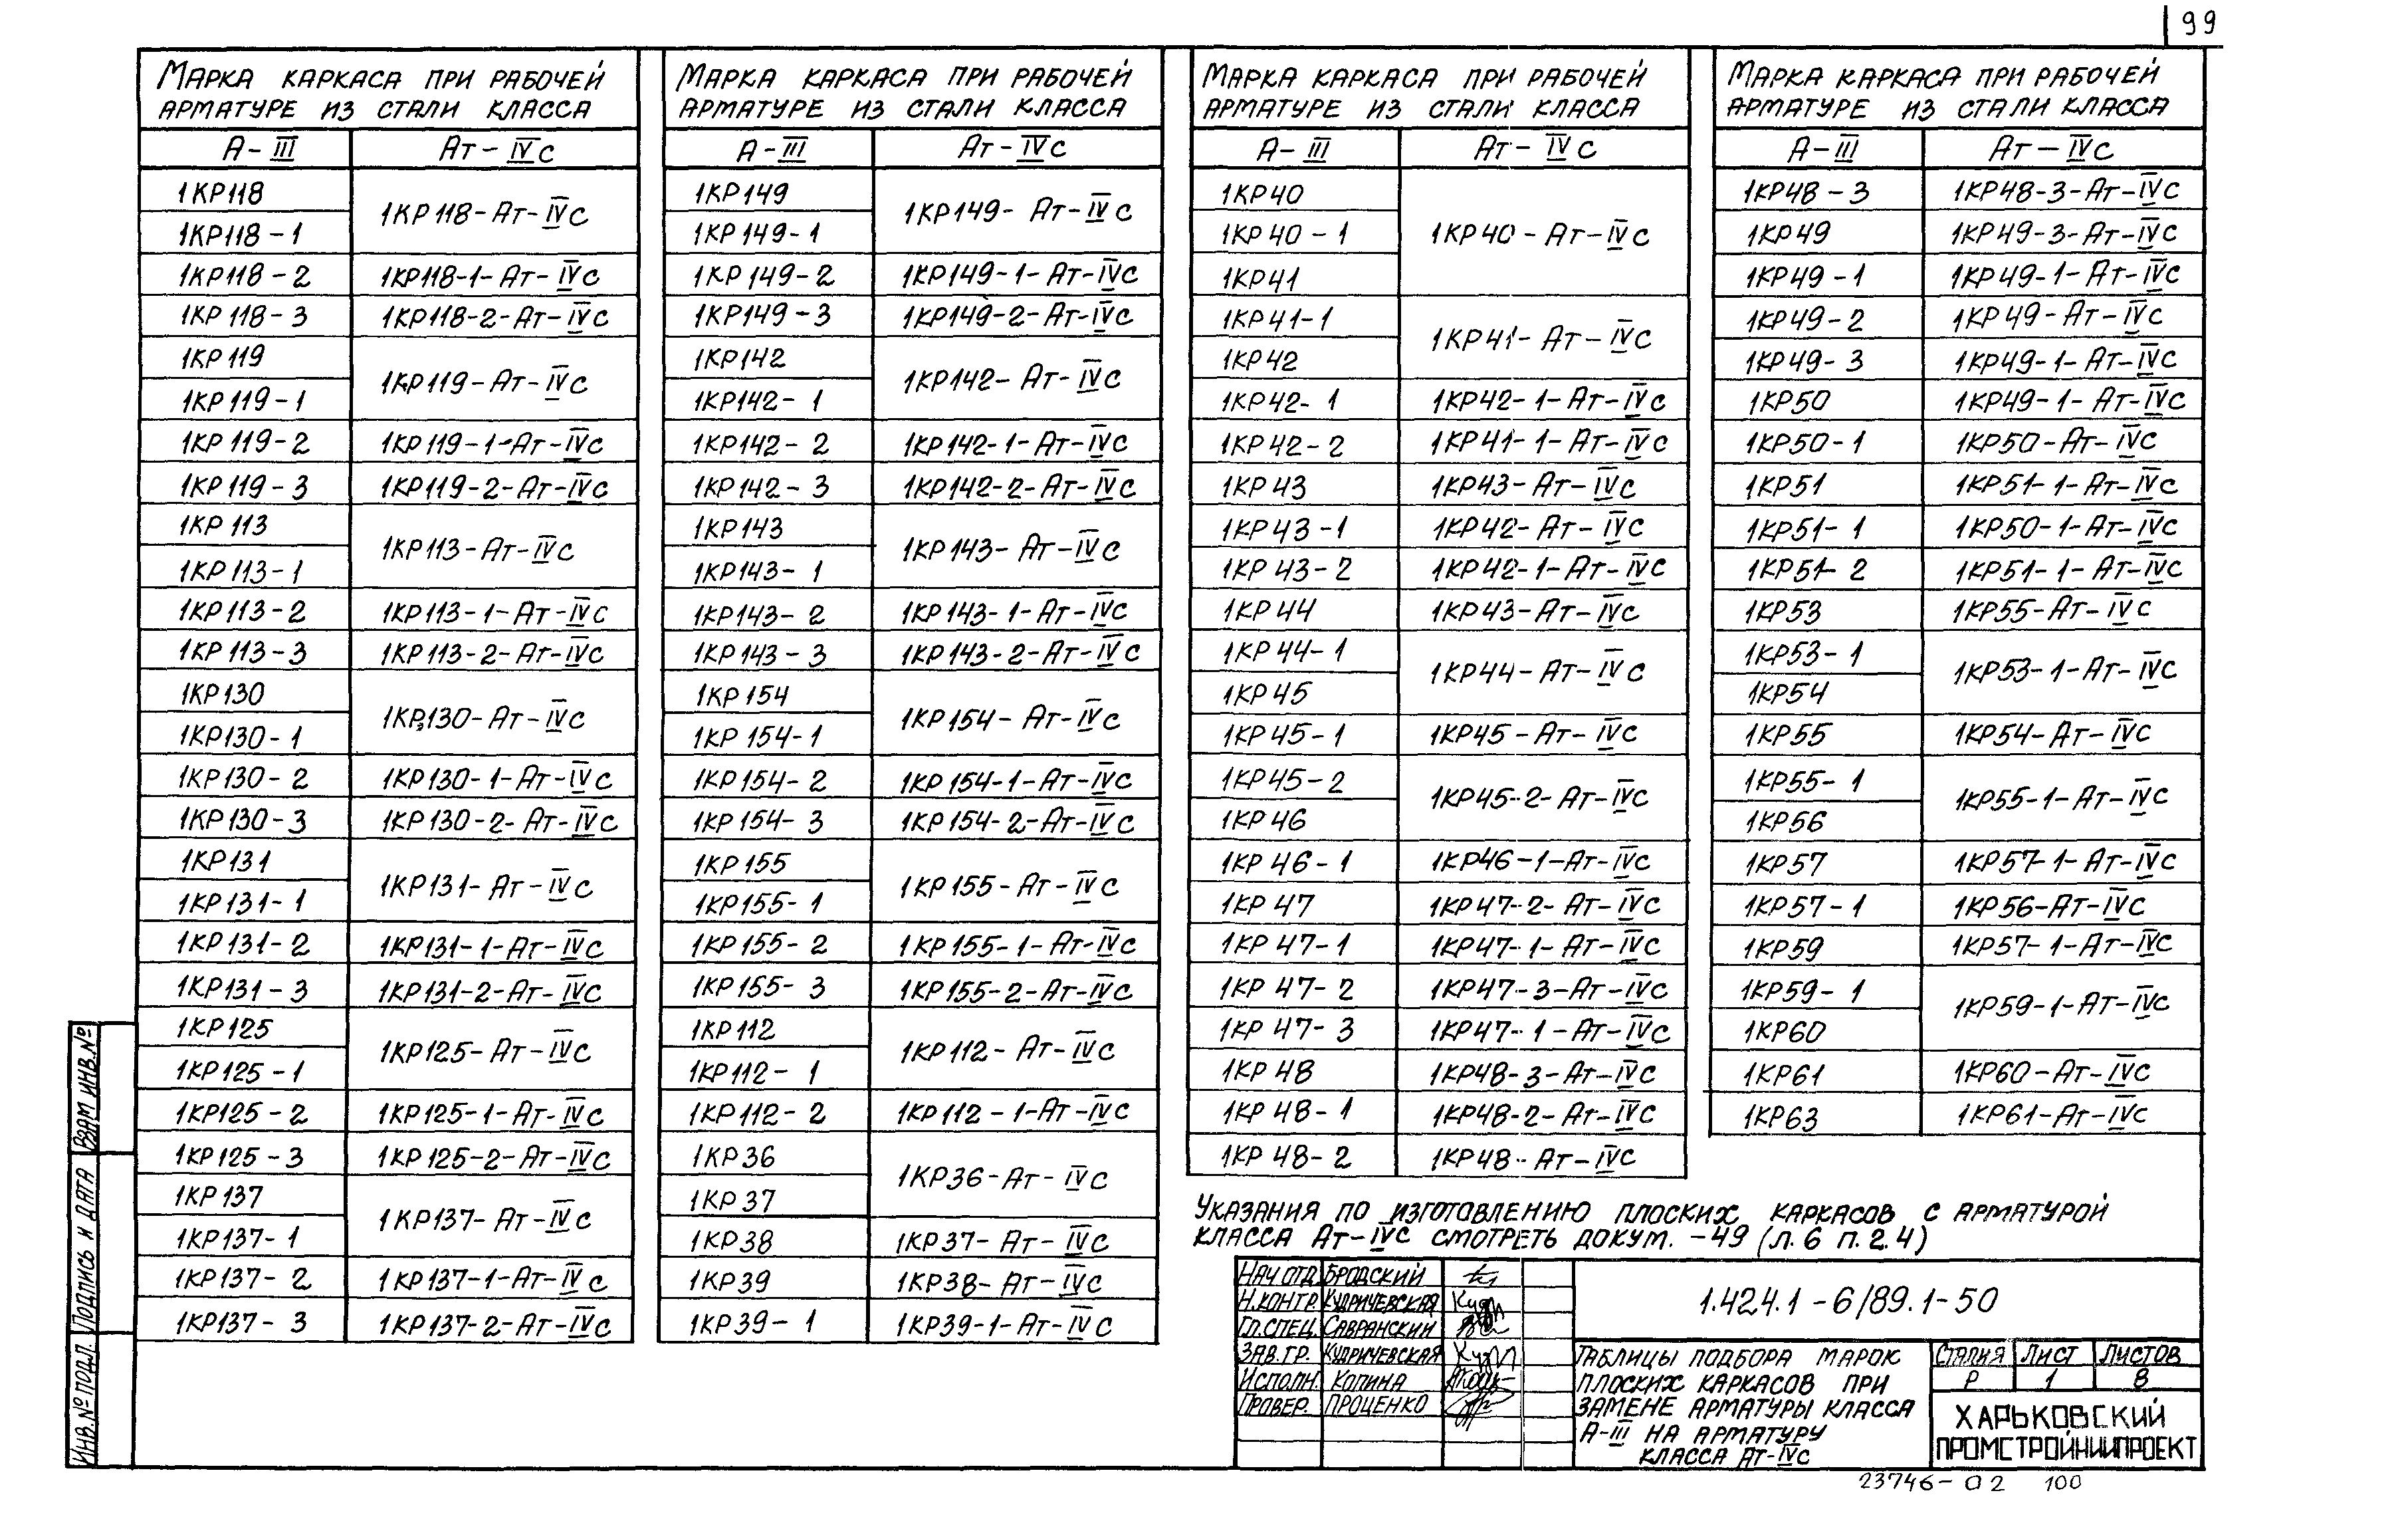 99
Марка каркаса при рабочей
арматуре из стали класса
А-III Ат-IVс
1КР118 1КР118-Ат-IVс
1КР118-1
1КР118-2 1КР118-1-Ат-IVс
1КР118-3 1КР118-2-Ат-IVс
1КР119 1КР119-Ат-IVс
1КР119-1
1КР119-2 1КР119-1-Ат-IVс
1КР119-3 1КР119-2-Ат-IVс
1КР113 1КР113-Ат-IVс
1КР113-1
1КР113-2 1КР113-1-Ат-IVс
1КР113-3 1КР113-2-Ат-IVс
1КР130 1КР130-Ат-IVс
1КР130-1
1КР130-2 1КР130-1-Ат-IVс
1КР130-3 1КР130-2-Ат-IVс
1КР131 1КР131-Ат-IVс
1КР131-1
1КР131-2 1КР131-1-Ат-IVс
1КР131-3 1КР131-2-Ат-IVс
1КР125 1КР125-Ат-IVс
1КР125-1
1КР125-2 1КР125-1-Ат-IVс
1КР125-3 1КР125-2-Ат-IVс
1КР137 1КР137-Ат-IVс
1КР137-1
1КР137-2 1КР137-1-Ат-IVс
1КР137-3 1КР137-2-Ат-IVс
Марка каркаса при рабочей
арматуре из стали класса
А-III Ат-IVс
1КР149 1КР149-Ат-IVс
1КР149-1
1КР149-2 1КР149-1-Ат-IVс
1КР149-3 1КР149-2-Ат-IVс
1КР142 1КР142-Ат-IVс
1КР142-1
1КР142-2 1КР142-1-Ат-IVс
1КР142-3 1КР142-2-Ат-IVс
1КР143 1КР143-Ат-IVс
1КР143-1
1КР143-2 1КР143-1-Ат-IVс
1КР143-3 1КР143-2-Ат-IVс
1КР154 1КР154-Ат-IVс
1КР154-1
1КР154-2 1КР154-1-Ат-IVс
1КР154-3 1КР154-2-Ат-IVс
1КР155 1КР155-Ат-IVс
1КР155-1
1КР155-2 1КР155-1-Ат-IVс
1КР155-3 1КР155-2-Ат-IVс
1КР112 1КР112-Ат-IVс
1КР112-1
1КР112-2 1КР112-1-Ат-IVс
1КР36 1КР36-Ат-IVс
1КР37
1КР38 1КР37-Ат-IVс
1КР39 1КР38-Ат-IVс
1КР39-1 1КР39-1-Ат-IVс
Марка каркаса при рабочей
арматуре из стали класса
А-III Ат-IVс
1КР40 1КР40-Ат-IVс
1КР40-1
1КР41
1КР41-1 1КР41-Ат-IVс
1КР42
1КР42-1 1КР42-1-Ат-IVс
1КР42-2 1КР41-1-Ат-IVс
1КР43 1КР43-Ат-IVс
1КР43-1 1КР42-Ат-IVс
1КР43-2 1КР42-1-Ат-IVс
1КР44 1КР43-Ат-IVс
1КР44-1 1КР44-Ат-IVс
1КР45
1КР45-1 1КР45-Ат-IVс
1КР45-2 1КР45-2-Ат-IVс
1КР46
1КР46-1 1КР46-1-Ат-IVс
1КР47 1КР47-2-Ат-IVс
1КР47-1 1КР47-1-Ат-IVс
1КР47-2 1КР47-3-Ат-IVс
1КР47-3 1КР47-1-Ат-IVс
1КР48 1КР48-3-Ат-IVс
1КР48-1 1КР48-2-Ат-IVс
1КР48-2 1КР48-Ат-IVс
Марка каркаса при рабочей
арматуре из стали класса
А-III Ат-IVс
1КР48-3 1КР48-3-Ат-IVс
1КР49 1КР49-3-Ат-IVс
1КР49-1 1КР49-1-Ат-IVс
1КР49-2 1КР49-Ат-IVс
1КР49-3 1КР49-1-Ат-IVс
1КР50 1КР49-1-Ат-IVс
1КР50-1 1КР50-Ат-IVс
1КР51 1КР51-1-Ат-IVс
1КР51-1 1КР50-1-Ат-IVс
1КР51-2 1КР51-1-Ат-IVс
1КР53 1КР55-Ат-IVс
1КР53-1 1КР53-1-Ат-IVс
1КР54
1КР55 1КР54-Ат-IVс
1КР55-1 1КР55-1-Ат-IVс
1КР56
1КР57 1КР57-1-Ат-IVс
1КР57-1 1КР56-Ат-IVс
1КР59 1КР57-1-Ат-IVс
1КР59-1 1КР59-1-Ат-IVс
1КР60
1КР61 1КР60-Ат-IVс
1КР63 1КР61-Ат-IVс
Указания по изготовлению плоских каркасов с арматурой
класса Ат-IVс смотреть докум. -49 (л.6 п.2.4)
Нач отд Бродский
Н.контр. Кудричевская
Гл.спец. Савранский
Зав.гр. Кудричевская
Исполн. Копина
Провер. Проценко
1.424.1-6/89.1-50
Таблицы подбора марок
плоских каркасов при
замене арматуры класса
А-III на арматуру
класса Ат-IVс
Стадия Лист Листов
Р 1 8
Харьковский
Промстройниипроект
Взам инв.№
Подпись и дата
Инв.№ подл.
23746-02 100